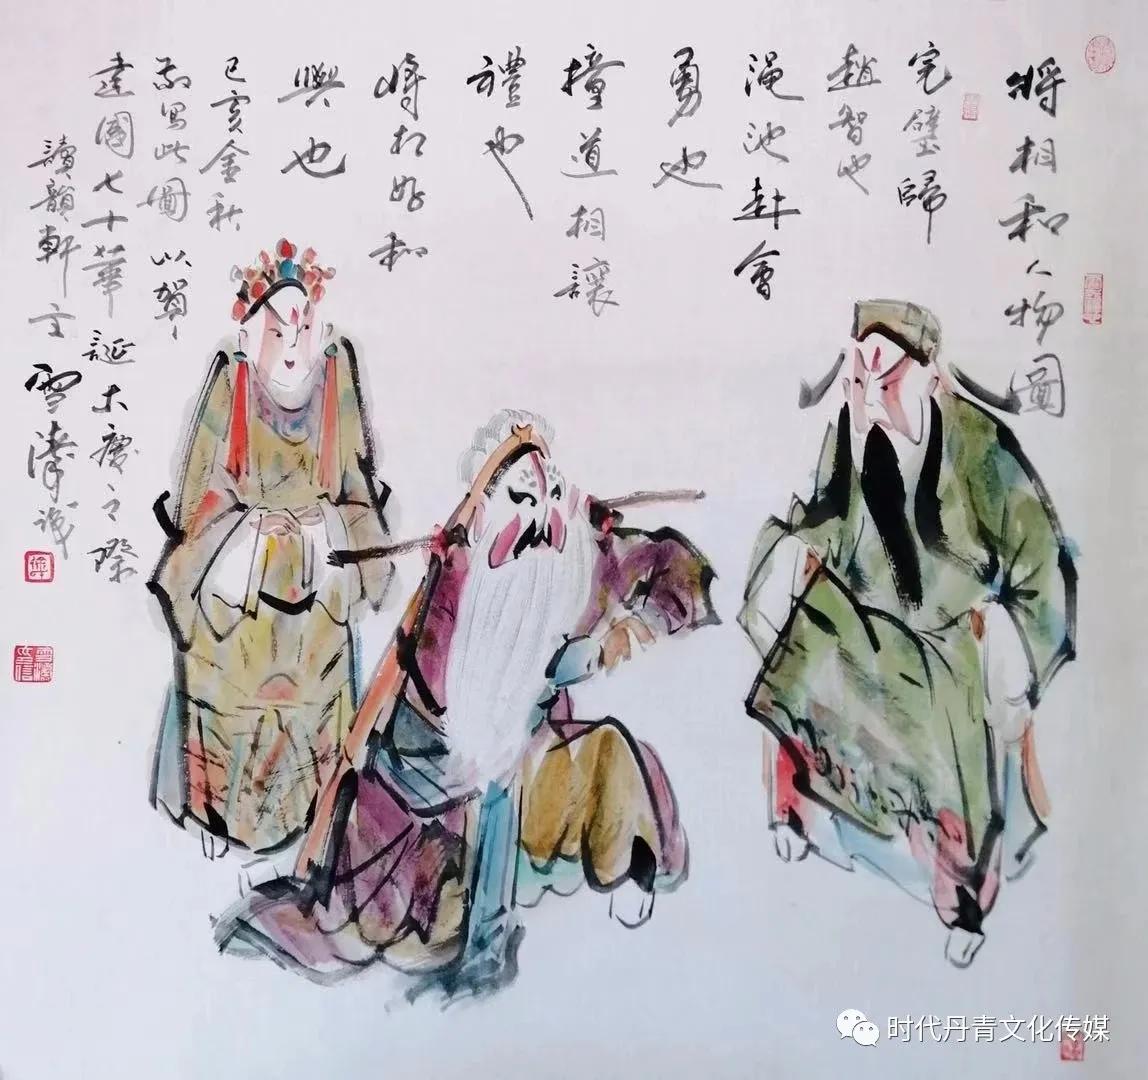 將相和人物圖
完璧歸
趙智也
渑池赴會
勇也
撞道相讓
禮也
將相好和
興也
己亥金秋
敬寫此圖以賀
建國七十華誕大慶之際
讀韻軒主雪濤識
时代丹青文化传媒